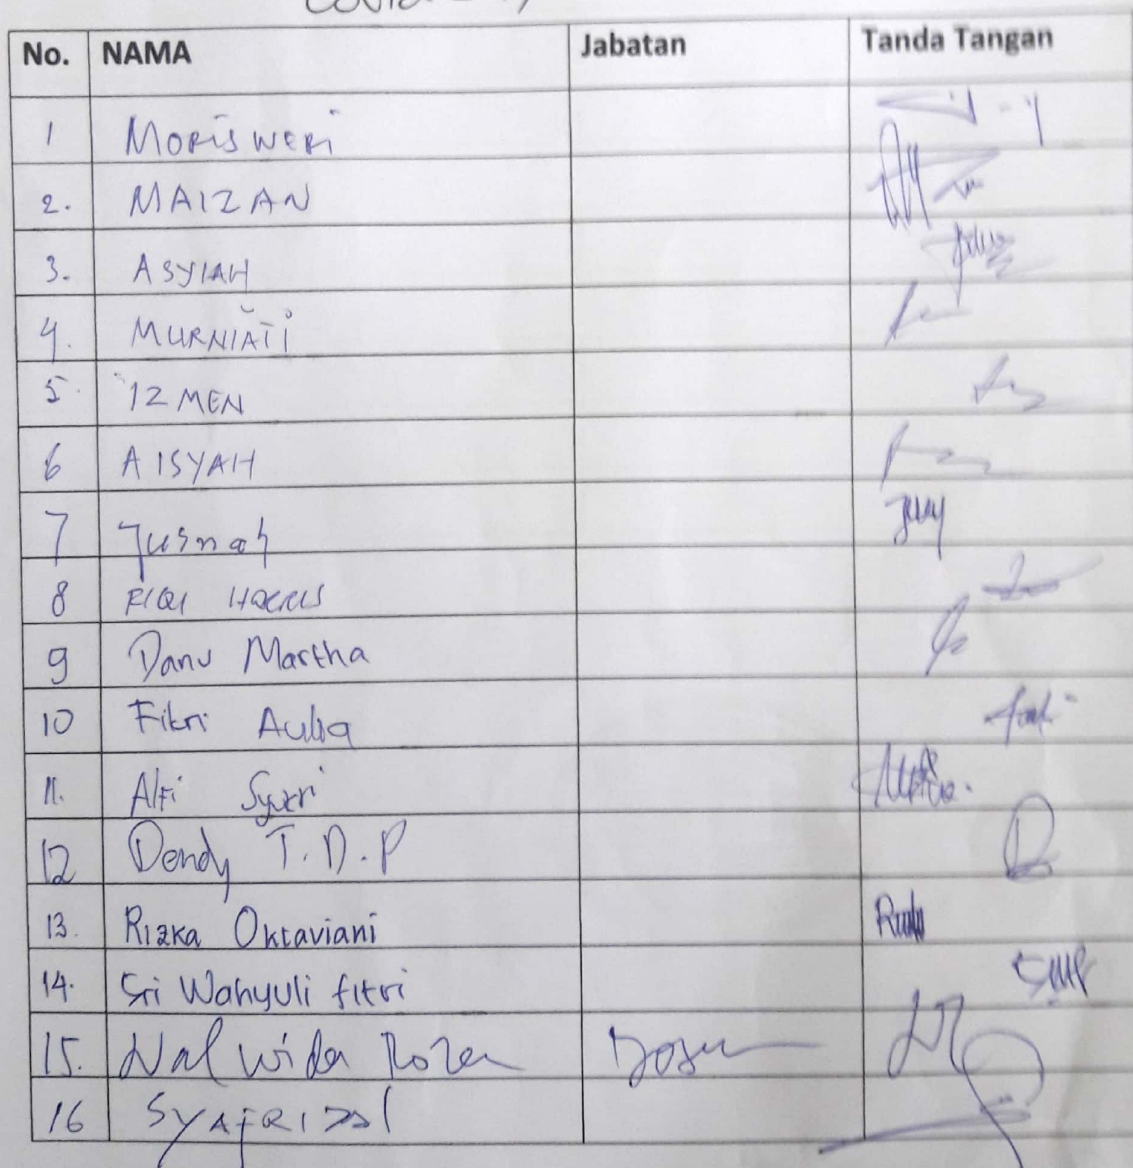 No. NAMA Jabatan Tanda Tangan
1 MORISWERI
2. MAIZAN
3. ASYIAH
4. MURNIATI
5. IZMEN
6 AISYAH
7 Jusnah
8 RIQI
9 Danu Martha
10 Fikri Aulia
11. Alfi Syukri
12 Dendy T.D.P
13. Rizka Oktaviani
14. Sri Wahyuli fitri
15. Nal Wida Roza Dosen
16 SYAFRIZAL